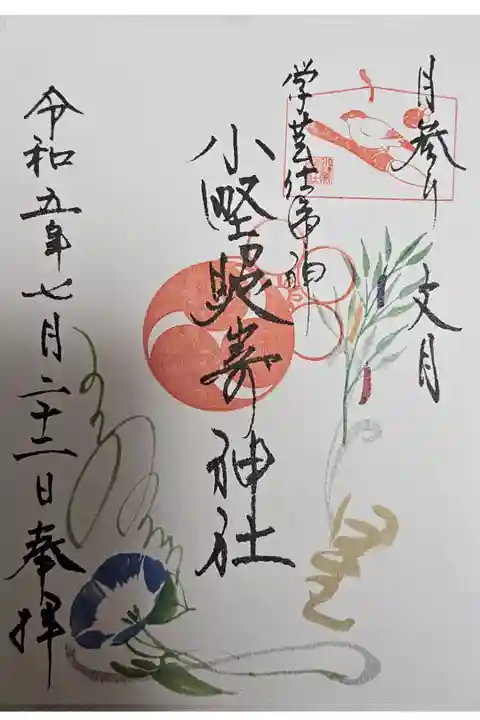 月参り 文月
学芸仕事神
小野照崎神社
令和五年七月二十二日奉拝